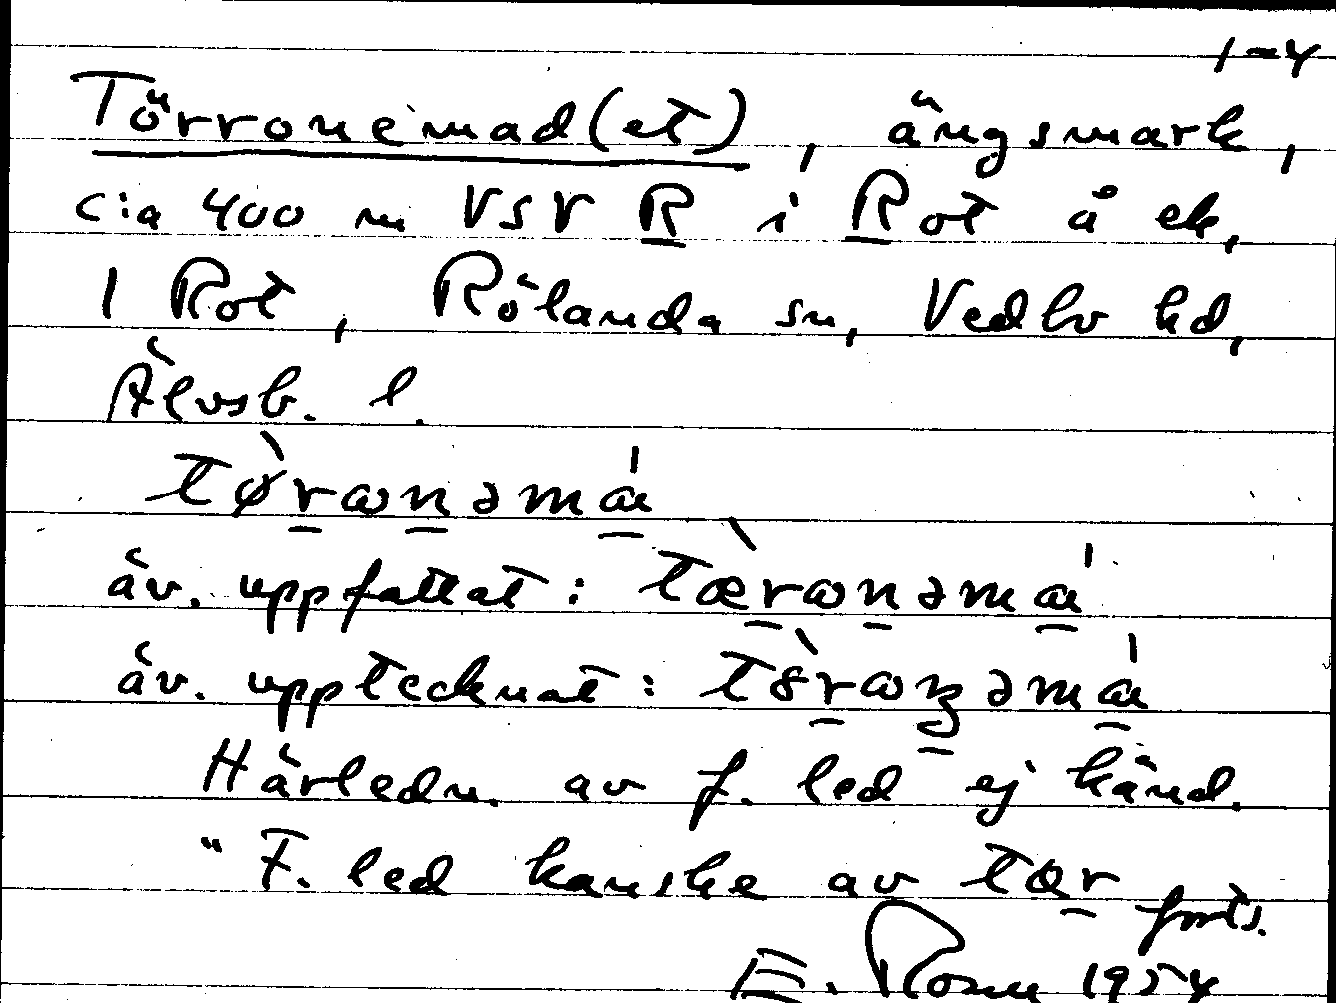 1-4
Törronemad(et), ängsmark,
c:a 400 m VSV R i Rot å ek,
1 Rot, Rölanda sn, Vedbo hd,
Älvsb. l.
tø̀rωnəmá
äv. uppfattat: tæ̀rωnəmá
äv. upptecknat:
Härledn. av f. led ej känd.
"F. led kanske av tær forts.
E. Rosm 1954